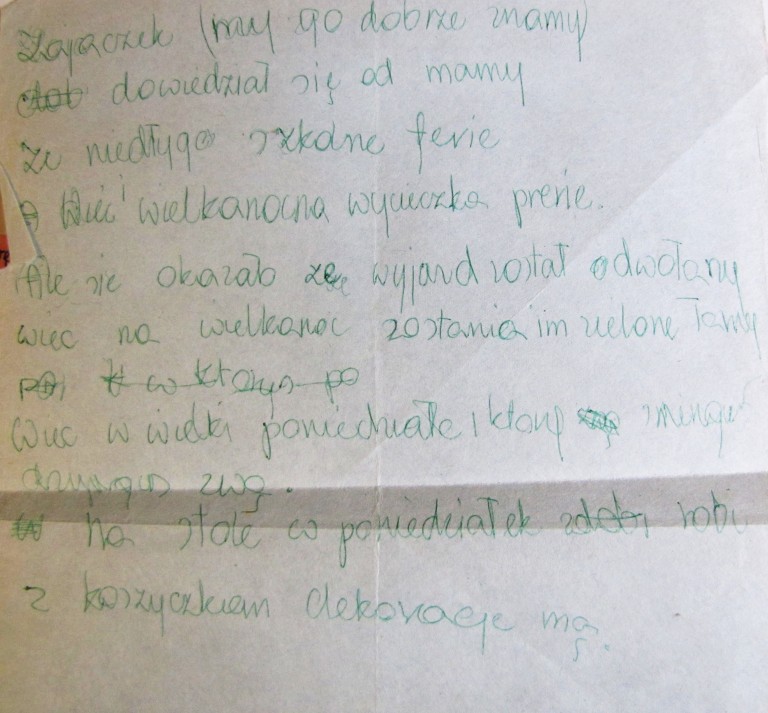 Zajączek (my go dobrze znamy)
dowiedział się od mamy
że niedłygo szkolne ferie
więc wielkanocna wycieczka prerie.
Ale sie okazało że wyjazd został odwołany
więc na wielkanoc zostanie im zielone
w którys po
więc w wielki poniedziałek który
zwą.
na stole w poniedziałek robi
z koszyczkiem dekoracje mą